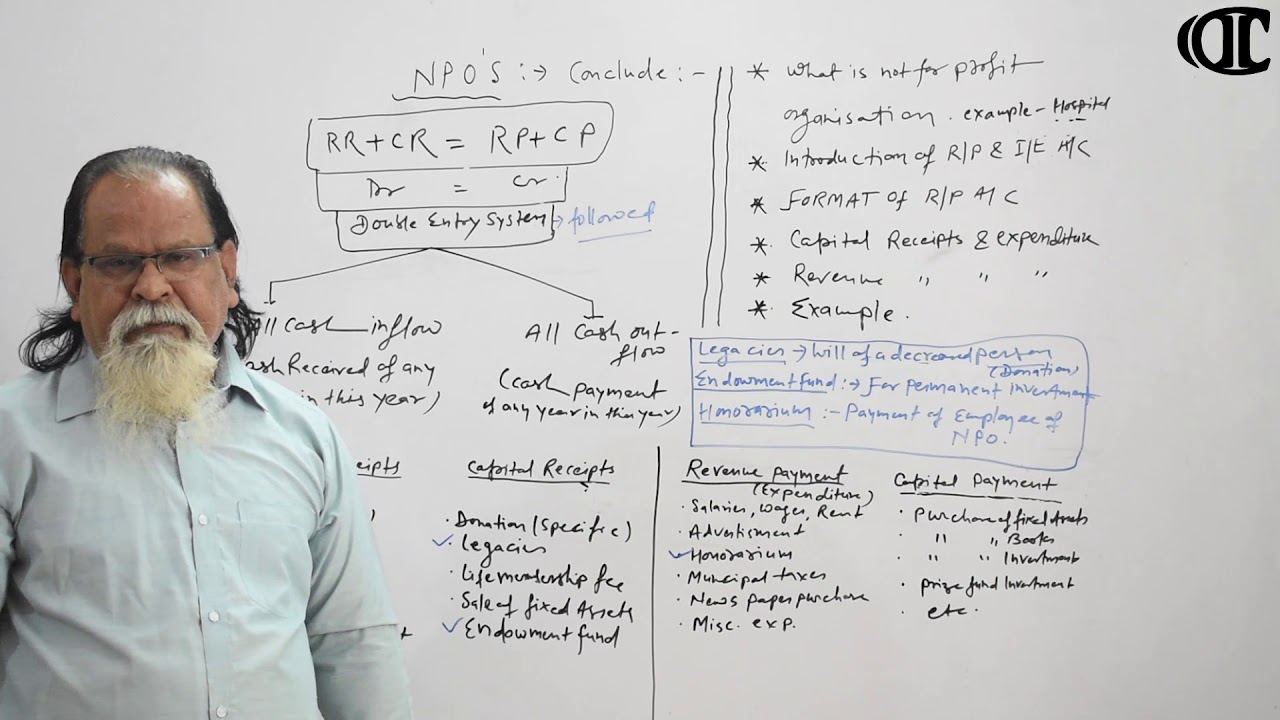 NPO'S :→ Conclude :-
RR + CR = RP + CP
Dr = Cr.
Double Entry System → followed
All Cash inflow
Cash Received of any
in this year)
All Cash out-
flow
(cash payment
of any year in this year)
* What is not for profit
organisation. example - Hospital
* Introduction of R/P & I/E A/C
* FORMAT of R/P A/C
* Capital Receipts & expenditure
* Revenue " " "
* Example.
Legacies → Will of a deceased person
(Donation)
Endowment fund :→ For permanent investment
Honorarium :- Payment of Employee of
NPO.
eipts
Capital Receipts
· Donation (Specific)
✓ · Legacies
· Life membership fee
· Sale of fixed Assets
✓ · Endowment fund
Revenue payment
(Expenditure)
· Salaries, Wages, Rent
· Advertisment
✓ · Honorarium
· Muncipal taxes
· News paper purchase
· Misc. exp.
Capital payment
· Purchase of fixed Assets
· " " Books
· " " Investment
· prize fund Investment
· etc.